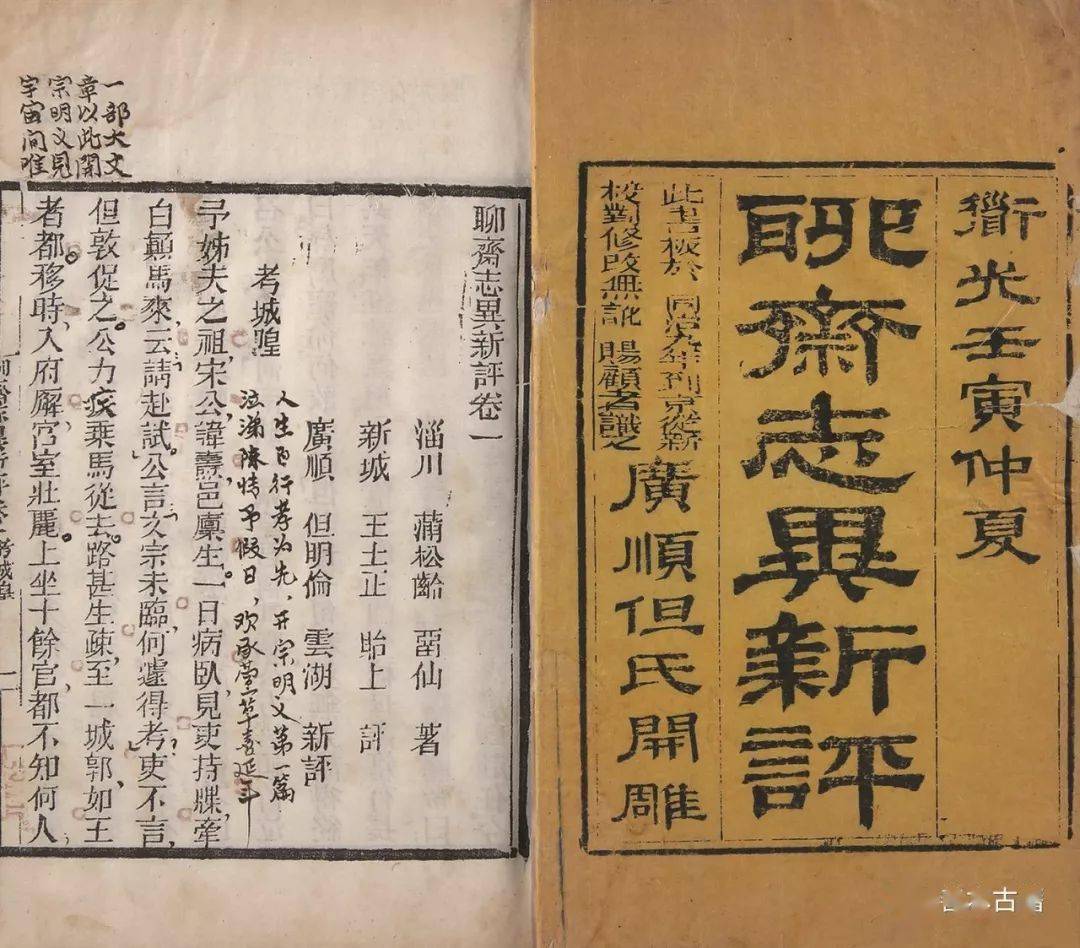 道光壬寅仲夏
聊齋志異新評
此書板於同治九年到京從新
校對修改無訛 賜顧者識之
廣順但氏開雕
聊齋志異新評卷一
淄川 蒲松齡 畱仙 著
新城 王士正 貽上 評
廣順 但明倫 雲湖 新評
考城隍
人生百行孝为先,开宗明义第一篇
泣涕陳情予假日,欢承萱草壽延年
予姊夫之祖,宋公諱燾,邑廩生。一日病臥,見吏持牒,牽
白顚馬來,云請赴試。公言文宗未臨,何遽得考,吏不言,
但敦促之。公力疾乘馬從去。路甚生疎,至一城郭,如王
者都,移時,入府廨,宮室壯麗。上坐十餘官,都不知何人
一部大文
章以此開
宗明义見
宇宙间唯
考城隍
古